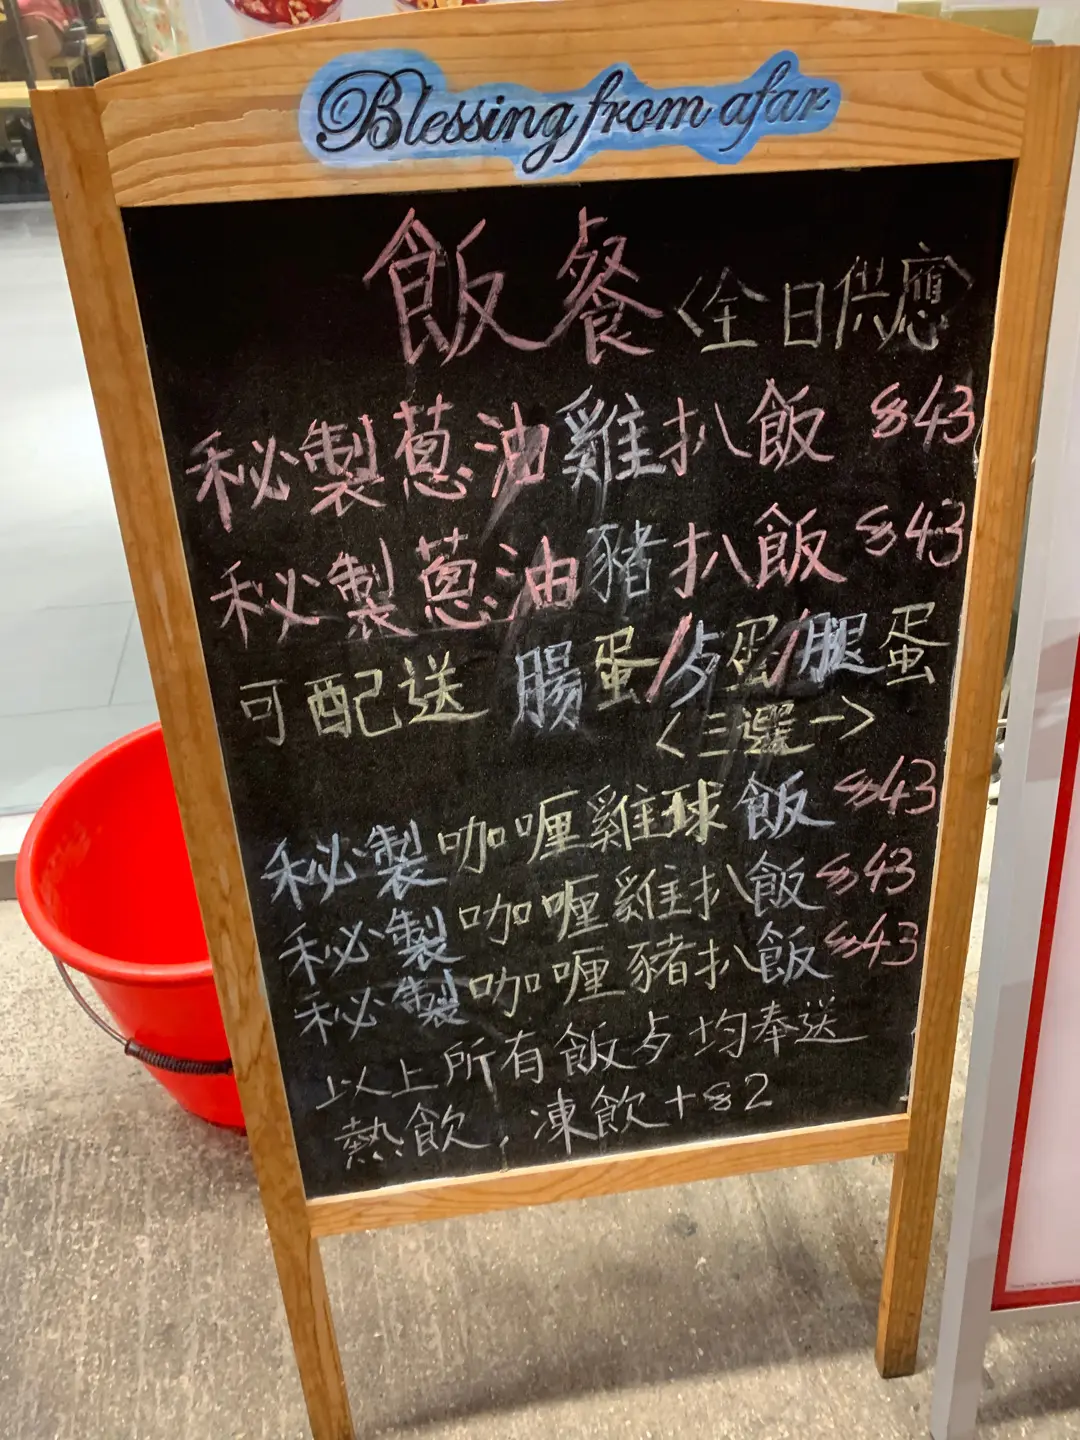 Blessing from afar
飯餐〈全日供應〉
秘製蔥油雞扒飯 $43
秘製蔥油豬扒飯 $43
可配送 腸蛋/歺蛋/腿蛋
〈三選一〉
秘製咖喱雞球飯 $43
秘製咖喱雞扒飯 $43
秘製咖喱豬扒飯 $43
以上所有飯歺均奉送
熱飲,凍飲+$2